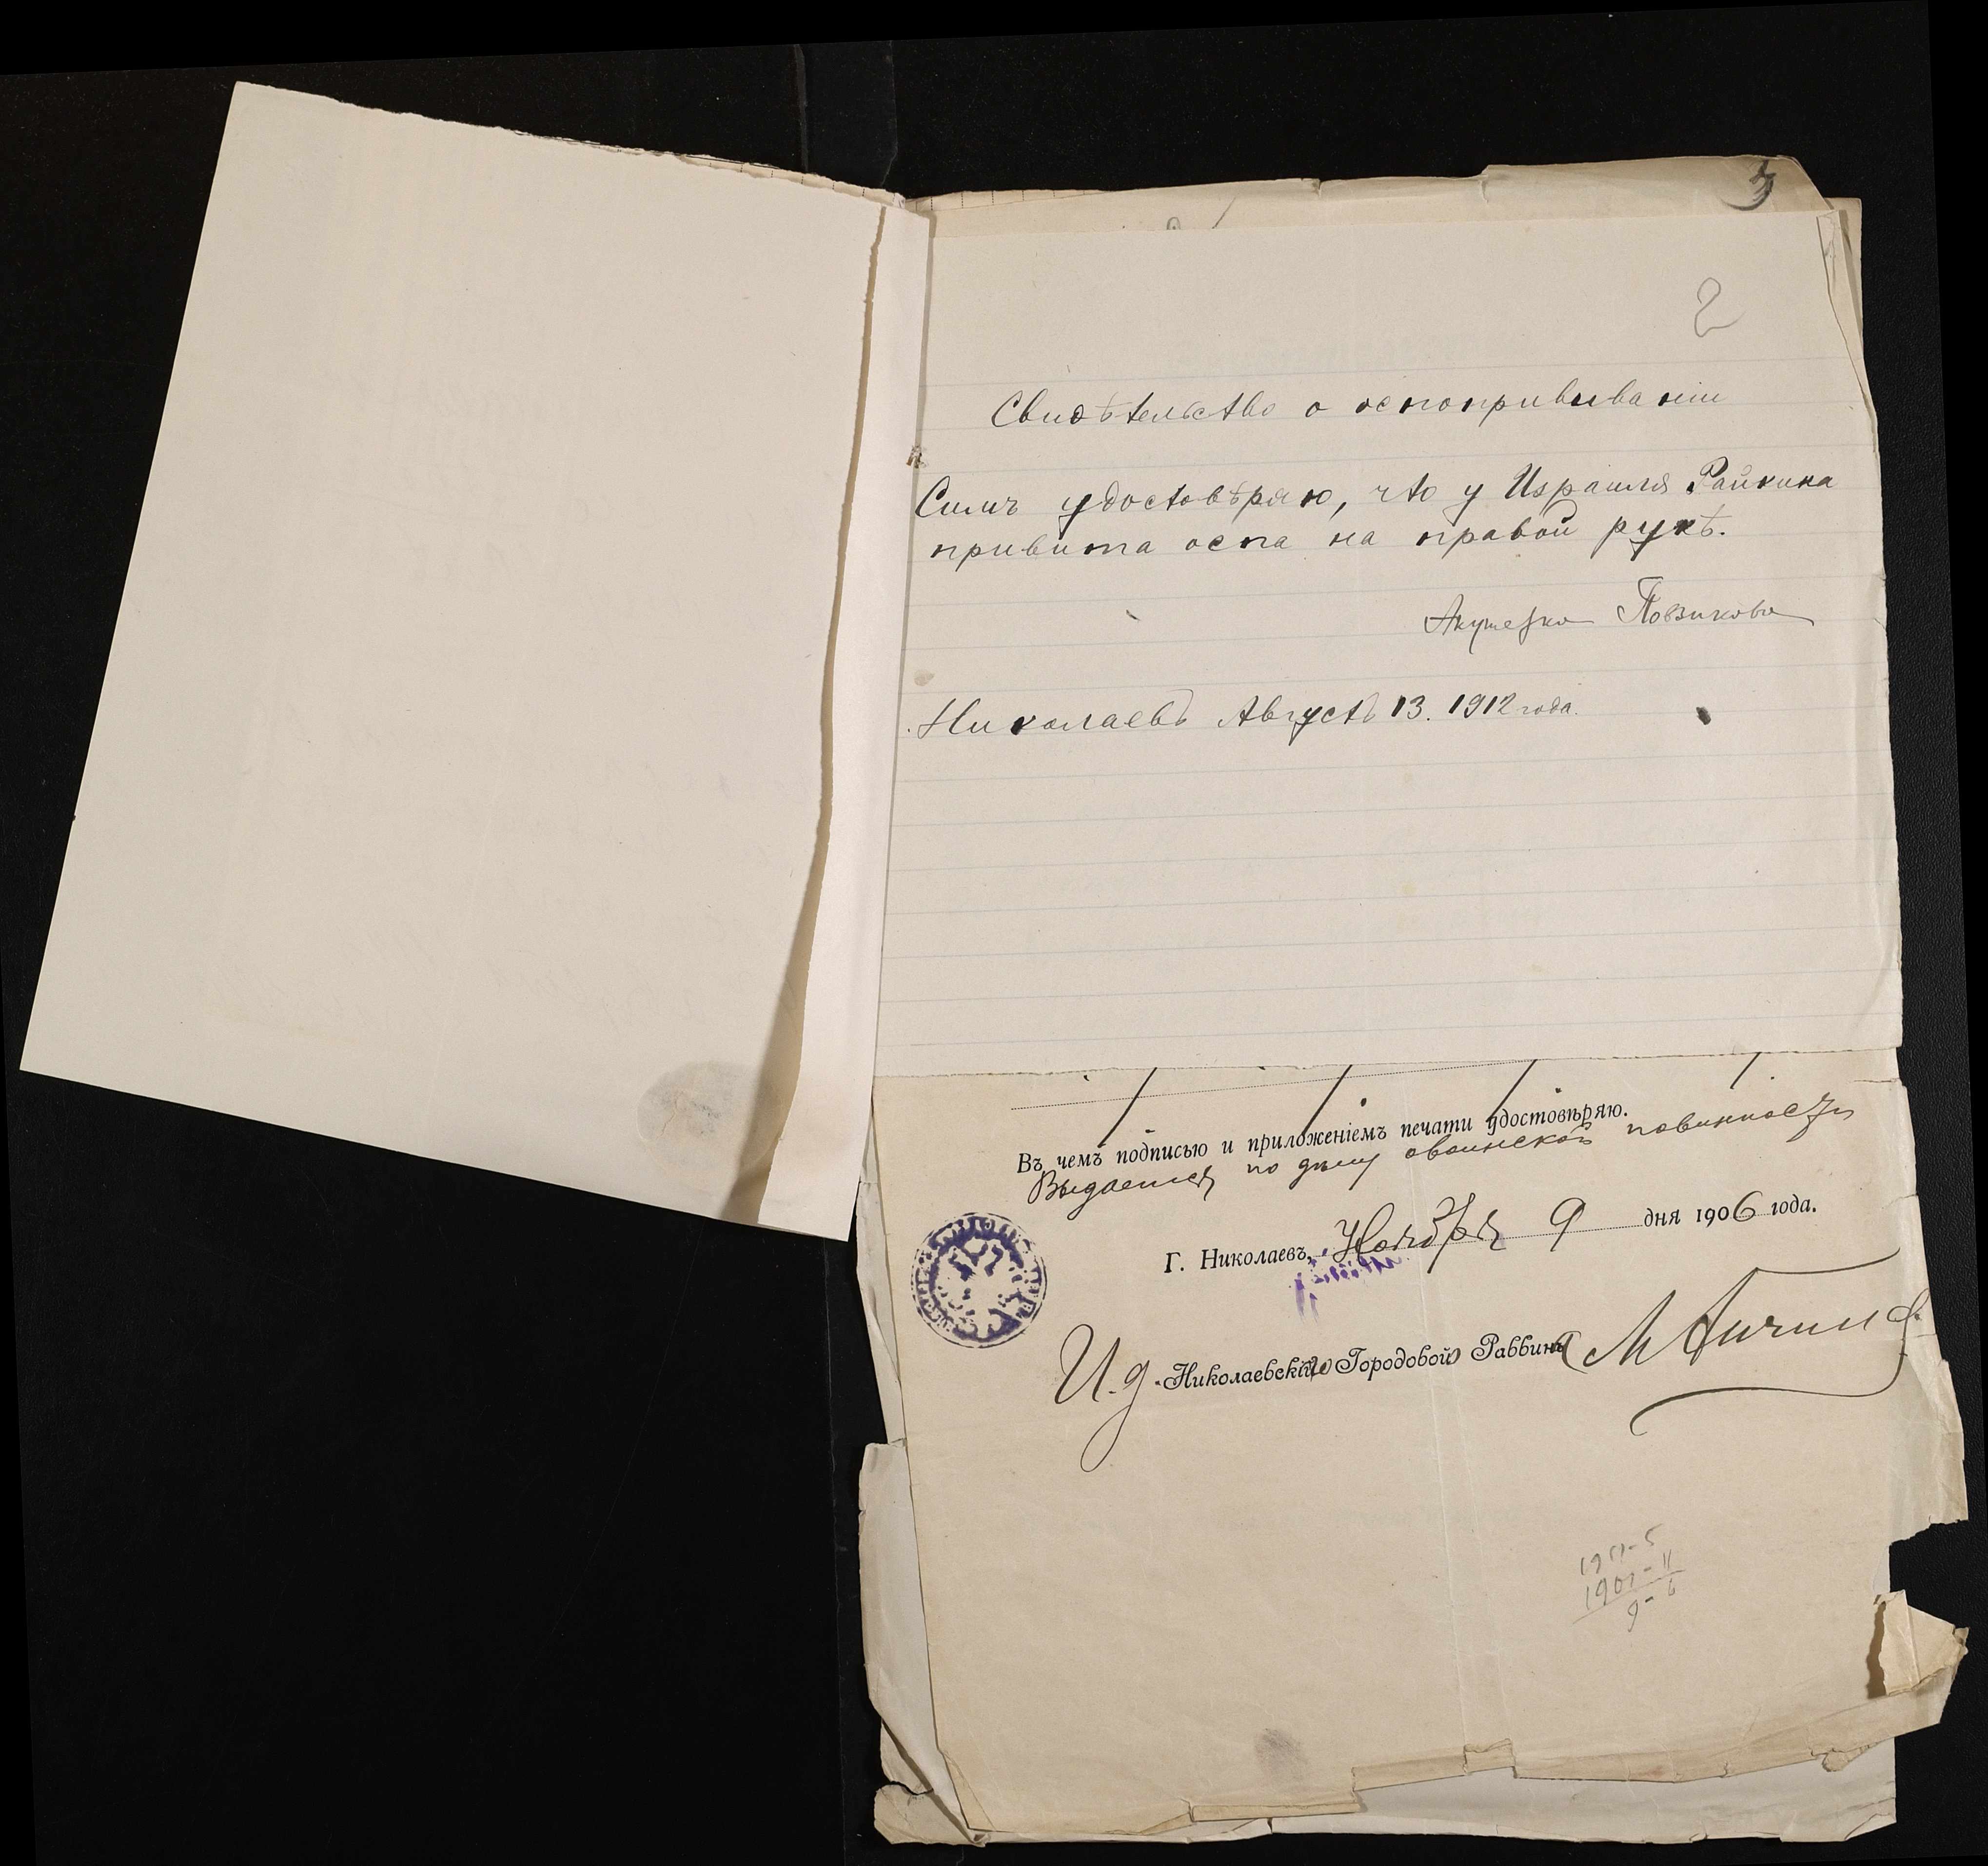 3
2
Свидѣтельство о оспопрививанiи
Симъ удостовѣряю, что у Израиля Райкина
привита оспа на правой рукѣ.
Акушерка Повзикова
Николаевъ Августъ 13. 1912 года.
Въ чемъ подписью и приложенiемъ печати удостовѣряю.
Выдается по дѣлу о воинской повинности
Г. Николаевъ, Ноября 9 дня 1906 года.
И.д. Николаевскiй Городовой Раввинъ
1901-11
9-6